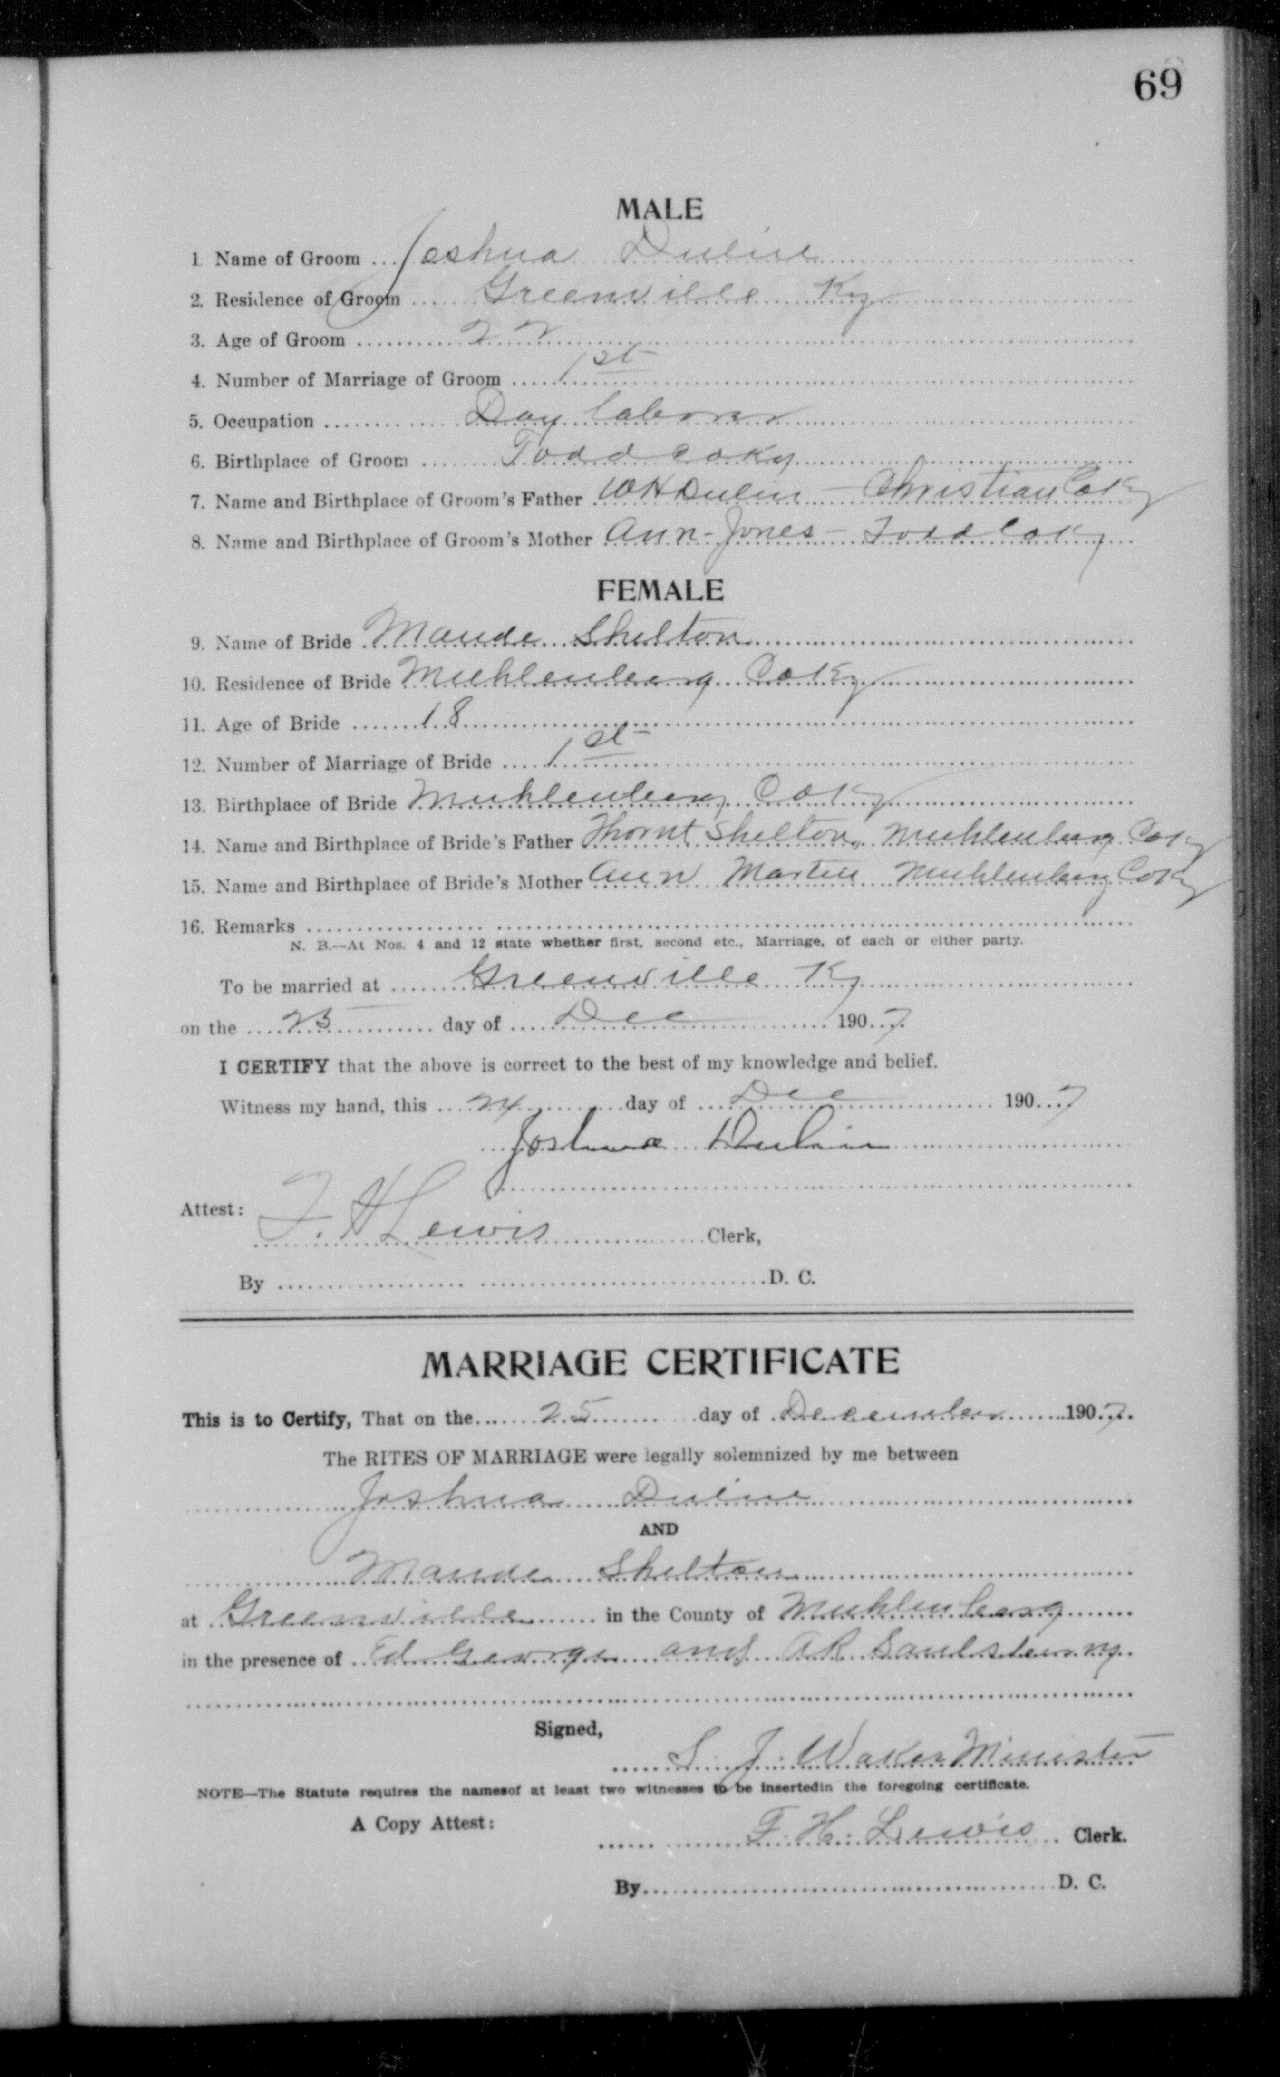 69
MALE
1 Name of Groom Joshua Duline
2. Residence of Groom Greenville Ky
3. Age of Groom 22
4. Number of Marriage of Groom 1st
5. Occupation Day laborer
6. Birthplace of Groom Todd Co Ky
7. Name and Birthplace of Groom's Father W H Dulin - Christian Co Ky
8. Name and Birthplace of Groom's Mother Ann - Jones - Todd Co Ky
FEMALE
9. Name of Bride Maude Shelton
10. Residence of Bride Muhlenberg Co Ky
11. Age of Bride 18
12. Number of Marriage of Bride 1st
13. Birthplace of Bride Muhlenberg Co Ky
14. Name and Birthplace of Bride's Father Thornt Shelton, Muhlenberg Co Ky
15. Name and Birthplace of Bride's Mother Ann Martin Muhlenberg Co Ky
16. Remarks
N. B.—At Nos. 4 and 12 state whether first, second etc., Marriage, of each or either party.
To be married at Greenville Ky
on the 25 day of Dec 1907
I CERTIFY that the above is correct to the best of my knowledge and belief.
Witness my hand, this 24 day of Dec 1907
Joshua Dulin
Attest:
T. H Lewis Clerk,
By D. C.
MARRIAGE CERTIFICATE
This is to Certify, That on the 25 day of December 1907
The RITES OF MARRIAGE were legally solemnized by me between
Joshua Duline
AND
Maude Shelton
at Greenville in the County of Muhlenberg
in the presence of Ed George and A R
Signed,
S. J. Waker Minister
NOTE—The Statute requires the namesof at least two witnesses to be insertedin the foregoing certificate.
A Copy Attest:
T. H. Lewis Clerk.
By D. C.